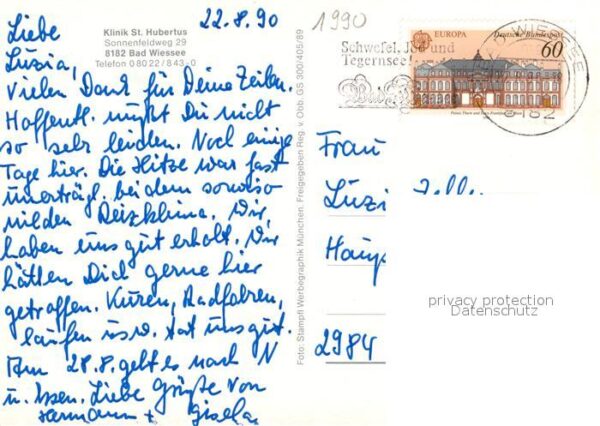 22.8.90
1990
Liebe
Luzia,
Klinik St. Hubertus
Sonnenfeldweg 29
8182 Bad Wiessee
Telefon 0 80 22 / 8 43 - 0
vielen Dank für Deine Zeilen.
Hoffentl. mußt Du nicht
so sehr leiden. Noch einige
Tage hier. Die Hitze war fast
unerträgl. bei dem sowieso
milden Reizklima. Wir
haben uns gut erholt. Wir
hätten Dich gerne hier
getroffen. Kuren, Radfahren,
laufen usw. tat uns gut.
Am 28.8. geht es nach N
u. Essen. Liebe Grüße von
Hermann + Gisela
Foto: Stampfl Werbegraphik München. Freigegeben Reg. v. Obb. GS 300/405/89
Schwefel, Jod und
Tegernsee!
Bad
EUROPA
Deutsche Bundespost
60
BAD WIESSEE
8182
Frau
Luzi
Haup
2984
privacy protection
Datenschutz